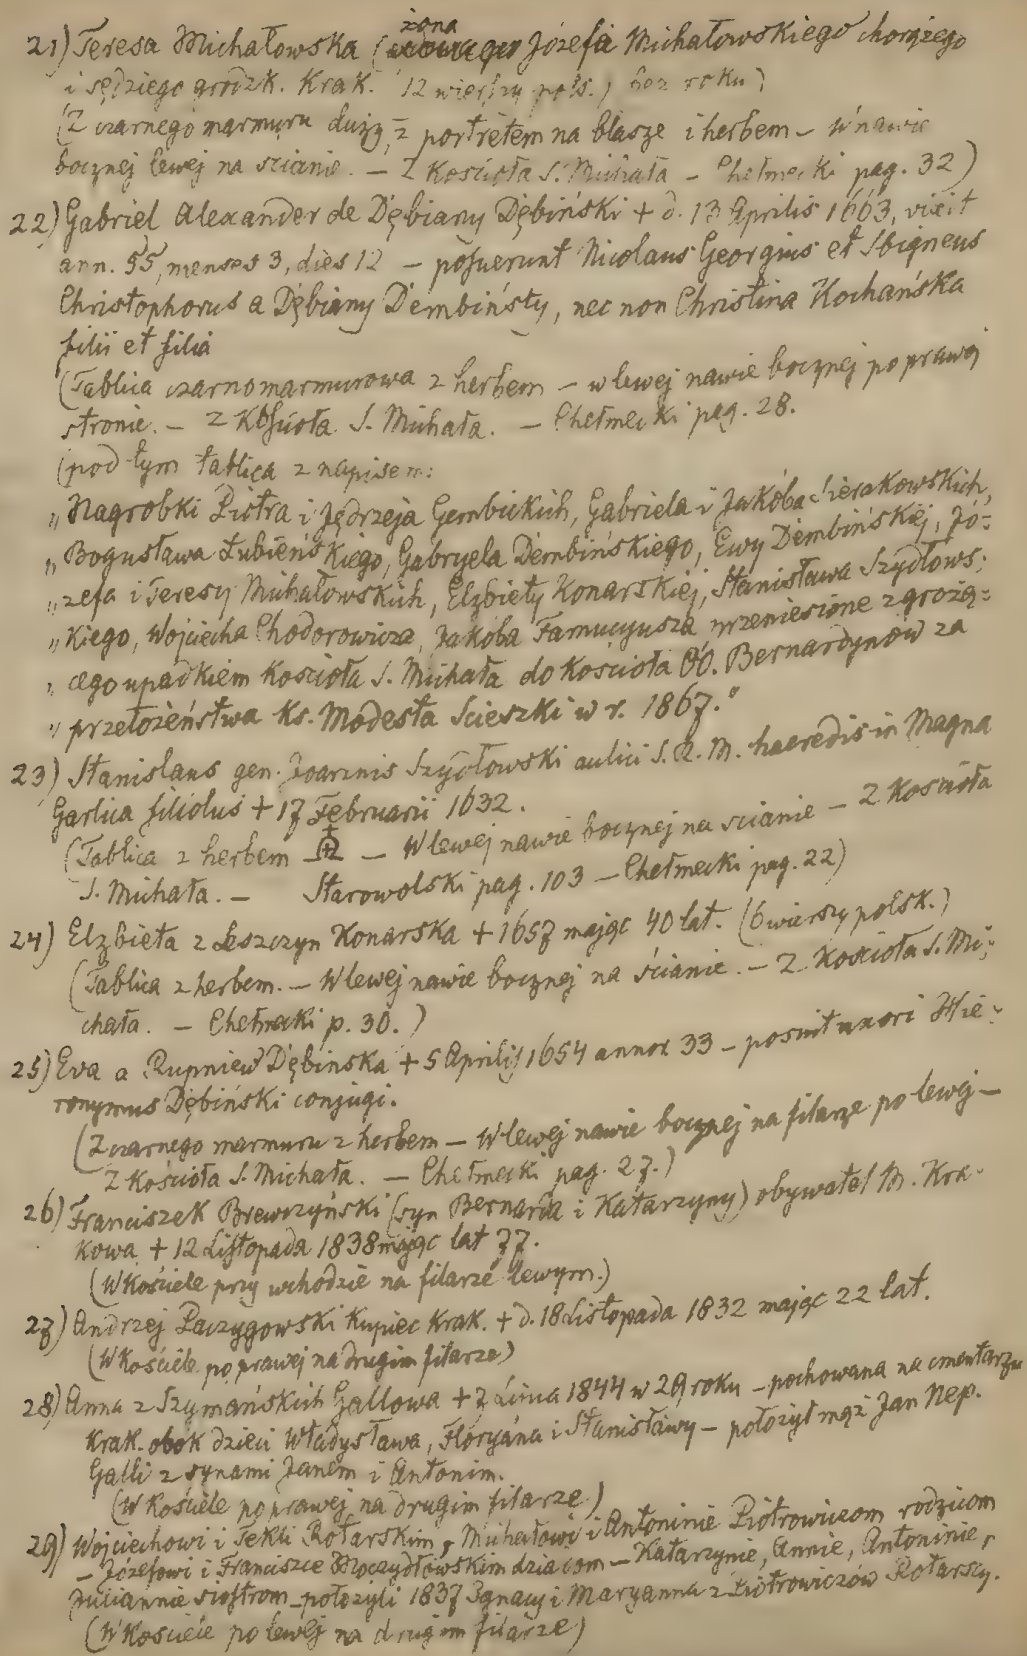 żona
21) Teresa Michałowska ( Józefa Michałowskiego chorążego
i sędziego grodzk. Krak. 12 wierszy pols.) bez roku)
(Z czarnego marmuru duży, z portretem na blasze i herbem – w nawie
bocznej lewej na scianie. – Z Kościoła S. Michała – Chełmecki pag. 32)
22) Gabriel Alexander de Dębiany Dębiński + d. 13 Aprilis 1663, vixit
ann. 55, menses 3, dies 12 – posuerunt Nicolaus Georgius et Sbigneus
Christophorus a Dębiany Dembińsły, nec non Christina Kochańska
filii et filia
(Tablica czarnomarmurowa z herbem – w lewej nawie bocznej po prawej
stronie. – Z Kościoła S. Michała. – Chełmecki pag. 28.
(pod tym tablica z napisem:
„Nagrobki Piotra i Jędrzeja Gembickich, Gabriela i Jakóba Sierakowskich,
„Bogusława Łubieńskiego, Gabryela Dembińskiego, Ewy Dembińskiej, Jó=
„zefa i Teresy Michałowskich, Elżbiety Konarskiéj, Stanisława Szydłows=
„kiego, Wojciecha Chodorowicza, Jakóba Famucyusza przeniesione z grożą=
„cego upadkiem Kościoła S. Michała do Kościoła OO. Bernardynów za
„przełożeństwa Ks. Modesta Scieszki w r. 1867."
23) Stanislaus gen. Joannis Szydłowski aulici S. R. M. haeredis in Magna
Garlica filiolus + 17 Februarii 1632.
(Tablica z herbem – W lewej nawie bocznej na scianie – Z Kościoła
S. Michała. – Starowolski pag. 103 – Chełmecki pag. 22)
24) Elżbieta z Leszczyn Konarska + 1657 mając 40 lat. (6 wierszy polsk.)
(Tablica z herbem. – W lewej nawie bocznej na ścianie. – Z Kościoła S. Mi=
chała. – Chełmecki p. 30.)
25) Eva a Rupniew Dębinska + 5 Aprilis 1654 annor 33 – posuit uxori Hie=
ronymus Dębiński conjugi.
(Z czarnego marmuru z herbem – W lewej nawie bocznej na filarze po lewej –
Z Kościoła S. Michała. – Chełmecki pag. 27.)
26) Franciszek Brewczyński (syn Bernarda i Katarzyny) obywatel M. Kra-
kowa + 12 Listopada 1838 mając lat 77.
(W Kościele przy wchodzie na filarze lewym.)
27) Andrzej Paczygowski Kupiec Krak. + d. 18 Listopada 1832 mając 22 lat.
(W Kościele po prawej na drugim filarze)
28) Anna z Szymańskich Gallowa + 7 Lipca 1844 w 29 roku – pochowana na cmentarzu
Krak. obok dzieci Władysława, Floryana i Stanisławy – położył mąż Jan Nep.
Galli z synami Janem i Antonim.
(W Kościele po prawej na drugim filarze)
29) Wojciechowi i Tekli Rotarskim, Michałowi i Antoninie Piotrowiczom rodzicom
– Józefowi i Franciszce Moczydłowskim dziadom – Katarzynie, Annie, Antoninie,
Juliannie siostrom – położyli 1837 Ignacy i Maryanna z Piotrowiczów Rotarscy.
(W Kościele po lewej na drugim filarze)